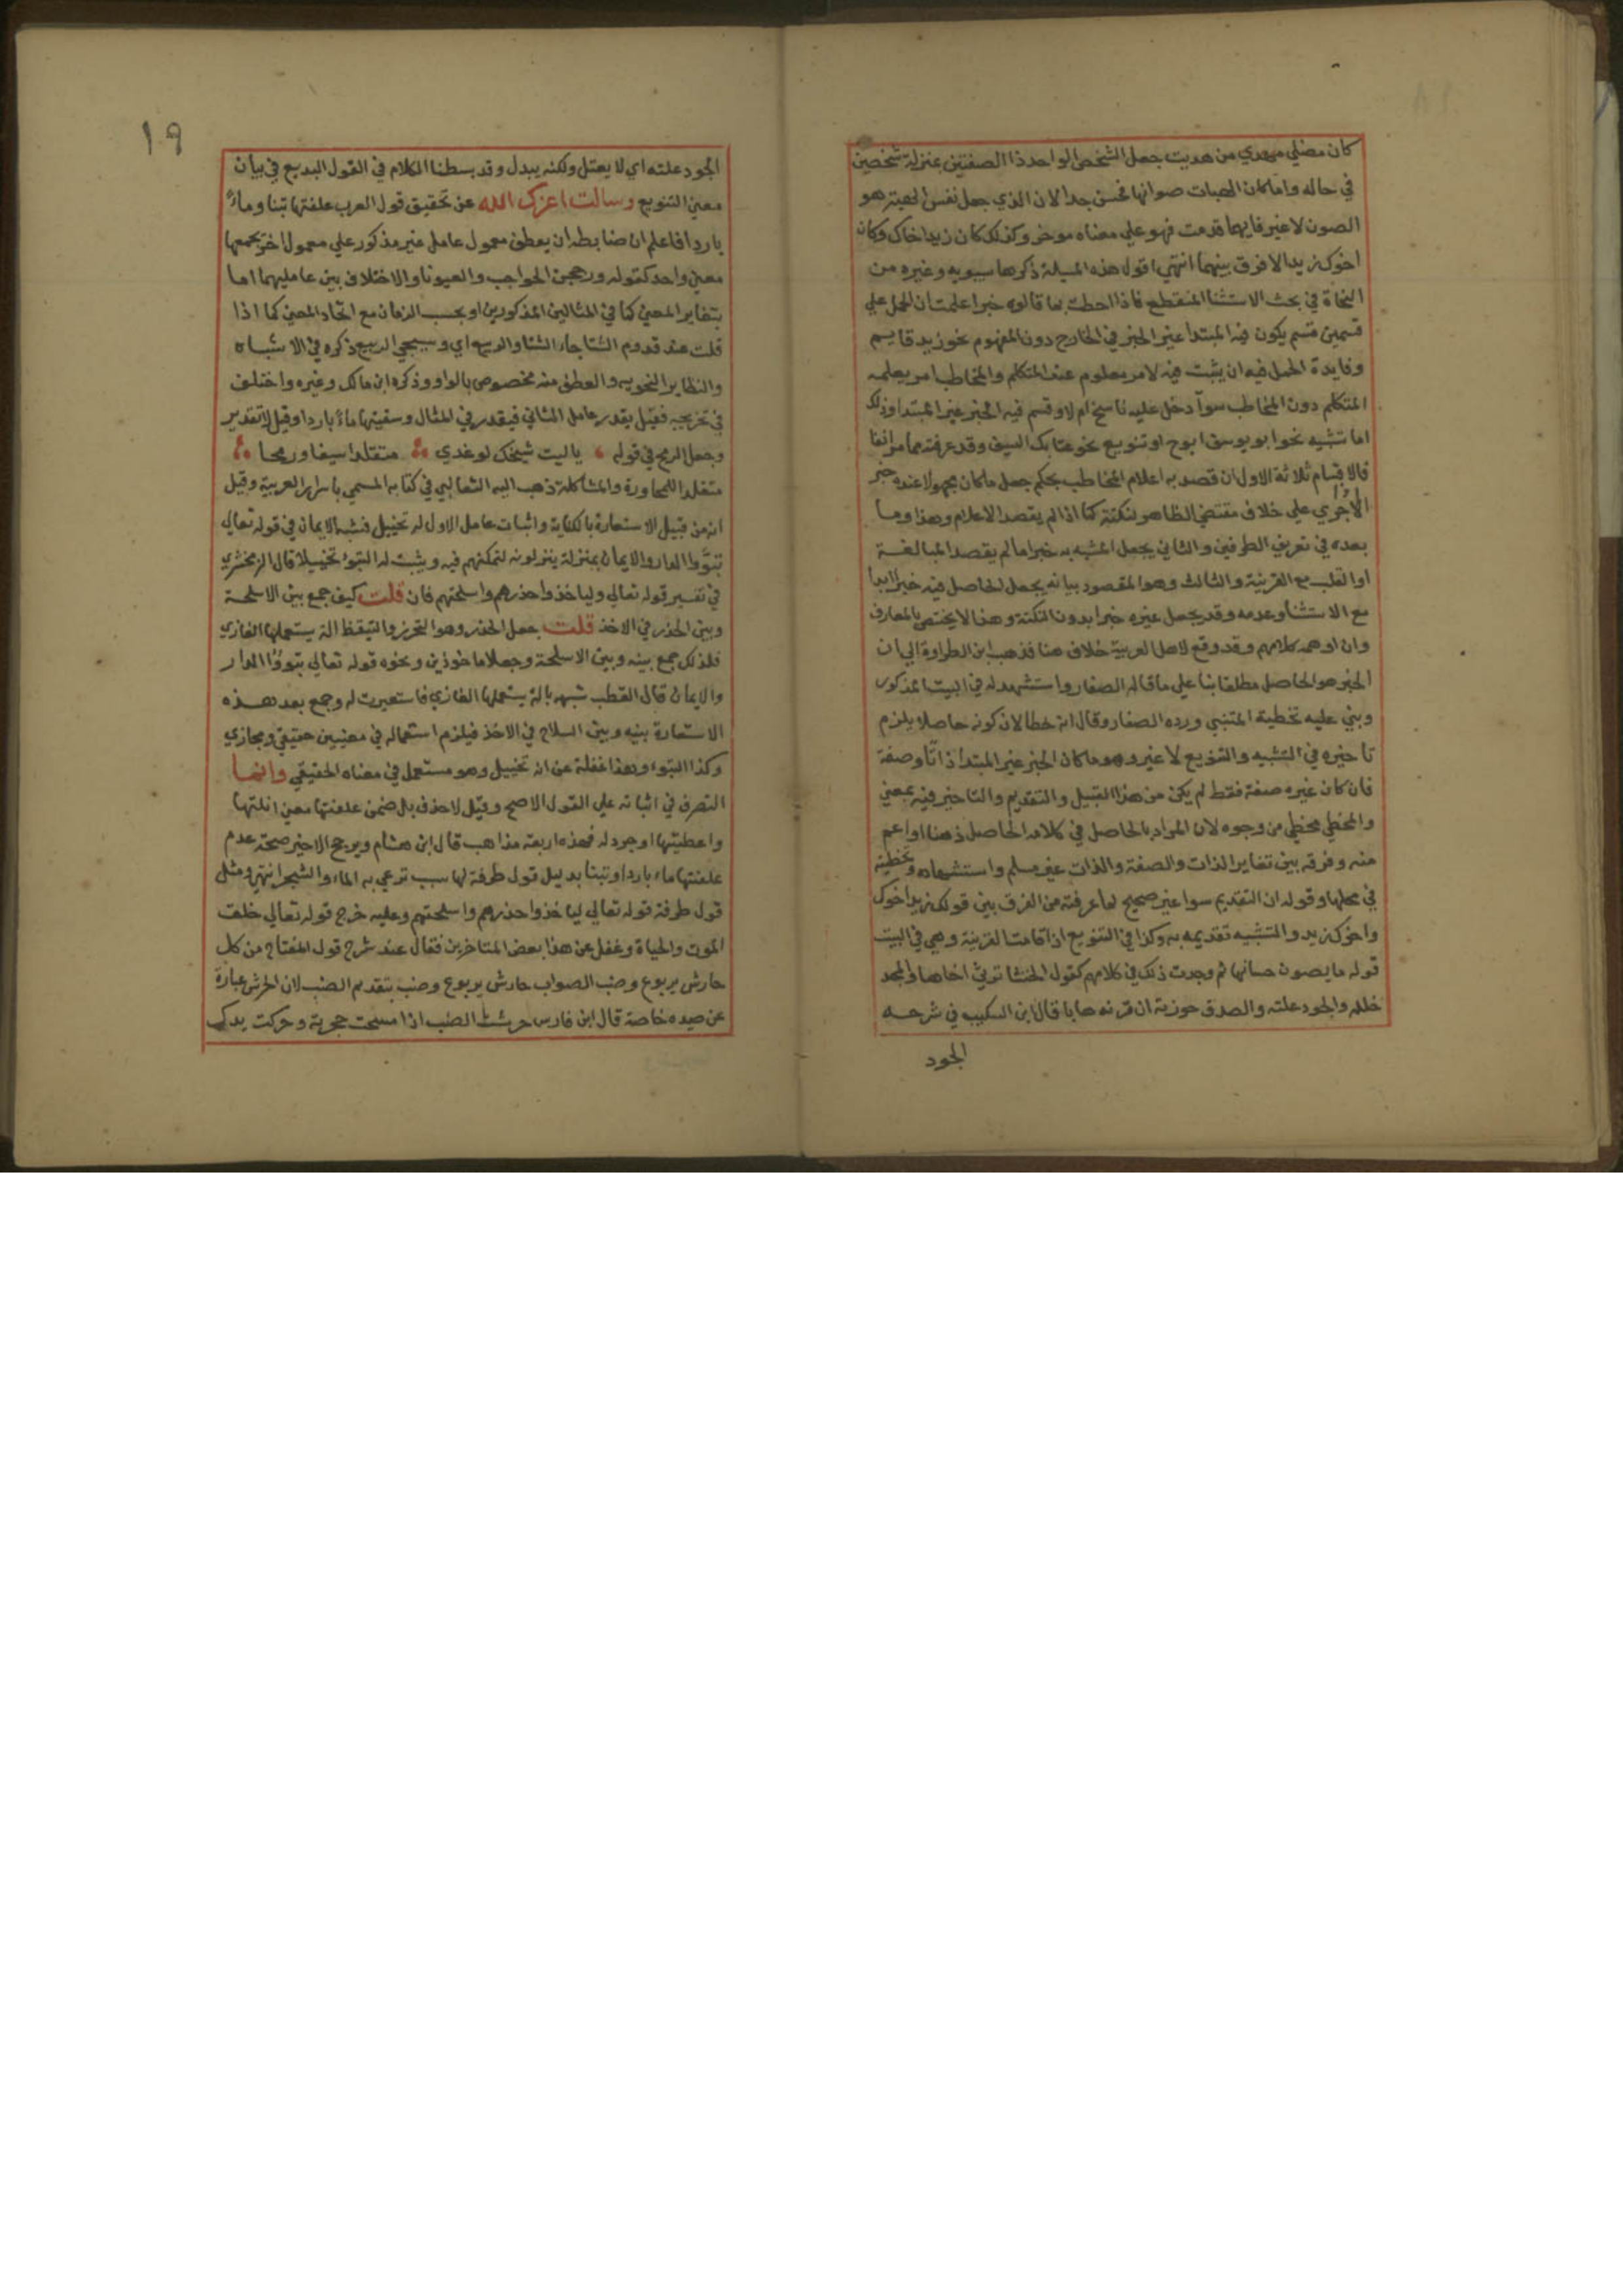 كان مضلي مهدي من هديت جعل الشخص الواحد ذا الصفتين بمنزلة شخصين
في حاله واما كان الهبات صوانها فحسن جدا لان الذي جعل نفس الهبة هو
الصون لا غير فايهما قدمت فهو على معناه موخر وكذلك كان زيد اخاك وكان
اخوك زيدا لا فرق بينهما انتهي اقول هذه المسيلة ذكرها سيبويه وغيره من
النحاة في بحث الاستثنا المنقطع فاذا احطت بما قالوه خبرا علمت ان الحمل علي
قسمين قسم يكون فيه المبتدا عين الخبر في الخارج دون المفهوم نحو زيد قايم
وفايدة الحمل فيه ان يثبت فيه لامر معلوم عند المتكلم والمخاطب امر يعلمه
المتكلم دون المخاطب سوآ دخل عليه ناسخ ام لا وقسم فيه الخبر غير المبتدا وذلك
اما تشبيه نحو ابو يوسف ابو ح او تنويع نحو عتابك السيف وقد عرفته مما مر انفا
فالاقسام ثلاثة الاول ان قصد به اعلام المخاطب بحكم جعل ما كان مجهولا عنده خبر
علي خلاف مقتضي الظاهر لنكتة كما اذا لم يقصد الاعلام وهذا وما
بعده في تعريف الطرفين والثاني يجعل المشبه به خبرا ما لم يقصد المبالغة
او القلب مع القرينة والثالث وهو المقصود بيانه يجعل الحاصل فيه خبرا ابدا
مع الاستثنا وعدمه وقد يجعل غيره خبرا بدون النكتة وهذا لا يختص بالمعارف
وان اوهمه كلامهم وقد وقع لاهل العربية خلاف هنا فذهب ابن الطراوة الي ان
الخبر هو الحاصل مطلقا بنا علي ما قاله الصفار واستشهد له في البيت المذكور
وبني عليه تخطية المتنبي ورده الصفار وقال انه خطا لان كونه حاصلا يلزم
تاخيره في التشبيه والتنويع لا غير وهو ما كان الخبر غير المبتدا ذاتا وصفة
فان كان غيره صفة فقط لم يكن من هذا القبيل والتقديم والتاخير فيه بمعني
والمخطي مخطي من وجوه لان المراد بالحاصل في كلامه الحاصل ذهنا او اعم
منه وفرقه بين تغاير الذات والصفة والذات غير مسلم واستشهاده وتخطية
في محلها وقوله ان التقديم سوا غير صحيح لما عرفته من الفرق بين قولك زيد اخوك
واخوك زيد والتشبيه تقديمه به وكذا في التنويع اذا قامت القرينة وهي في البيت
قوله ما يصون حسانها ثم وجدت ذلك في كلامهم كقول الخنسا ترثي اخاها والمجد
حلله والجود علته والصدق حوزته ان قرنه هابا قال ابن السكيت في شرحه
الجود
١٩
الجود علته اي لا يعتل ولكنه يبدل وقد بسطنا الكلام في القول البديع في بيان
معني التنويع وسالت اعزك الله عن تحقيق قول العرب علفتها تبنا وماءً
باردا فاعلم ان ضابطه ان يعطف معمول عامل غير مذكور علي معمول اخر يجمعها
معني واحد كقوله وزججن الحواجب والعيونا والاختلاف بين عامليهما اما
بتغاير المعني كما في المثالين المذكورين او بحسب الزمان مع اتحاد المعني كما اذا
قلت عند قدوم الشتا جاء الشتا والربيع اي وسيجي الربيع ذكره في الاشباه
والنظاير النحويه والعطف منه مخصوص بالواو وذكره ابن مالك وغيره واختلف
في تخريجه فقيل يقدر عامل الثاني فيقدر في المثال وسقيتها ماءً باردا وقيل لا تقدير
وجعل الرمح في قوله ياليت شيخك لو غدي متقلدا سيفا ورمحا
متقلدا للمجاورة والمشاكلة ذهب اليه الثعالبي في كتابه المسمي باسرار العربية وقيل
انه من قبيل الاستعارة بالكناية واثبات عامل الاول له تخييل فشبه الايمان في قوله تعالي
تبوّوا الدار والايمان بمنزلة ينزلونه لتمكنهم فيه ويثبت له التبوّء تخييلا قال الزمخشري
في تفسير قوله تعالي ولياخذوا حذرهم واسلحتهم فان قلت كيف جمع بين الاسلحة
وبين الحذر في الاخذ قلت جعل الحذر وهو التحرز والتيقظ الة يستعملها الغازي
فلذلك جمع بينه وبين الاسلحة وجعلا ماخوذين ونحوه قوله تعالي تبوؤا الدار
والايمان قال القطب شبهه بالة يستعملها الغازي فاستعيرت له وجمع بعد هذه
الاستعارة بينه وبين السلاح في الاخذ فيلزم استعماله في معنيين حقيقي ومجازي
وكذا التبوء وهذا غفلة عن انه تخييل وهو مستعمل في معناه الحقيقي وانما
التصرف في اثباته علي القول الاصح وقيل لا حذف بل ضمن علفتها معني انلتها
واعطيتها اوجرد له فهذه اربعة مذاهب قال ابن هشام ويرجح الاخير صحة عدم
علفتها ماء باردا وتبنا بدليل قول طرفة لها سبب ترعي به الماء والشجر انتهي ومثل
قول طرفة قوله تعالي لياخذوا حذرهم واسلحتهم وعليه خرج قوله تعالي خلق
الموت والحياة وغفل عن هذا بعض المتاخرين فقال عند شرح قول المفتاح من كل
حارش يربوع وضب الصواب حارش يربوع وضب بتقديم الضب لان الحرش عبارة
عن صيده خاصة قال ابن فارس حرشت الضب اذا مسحت حجرته وحركت يدك